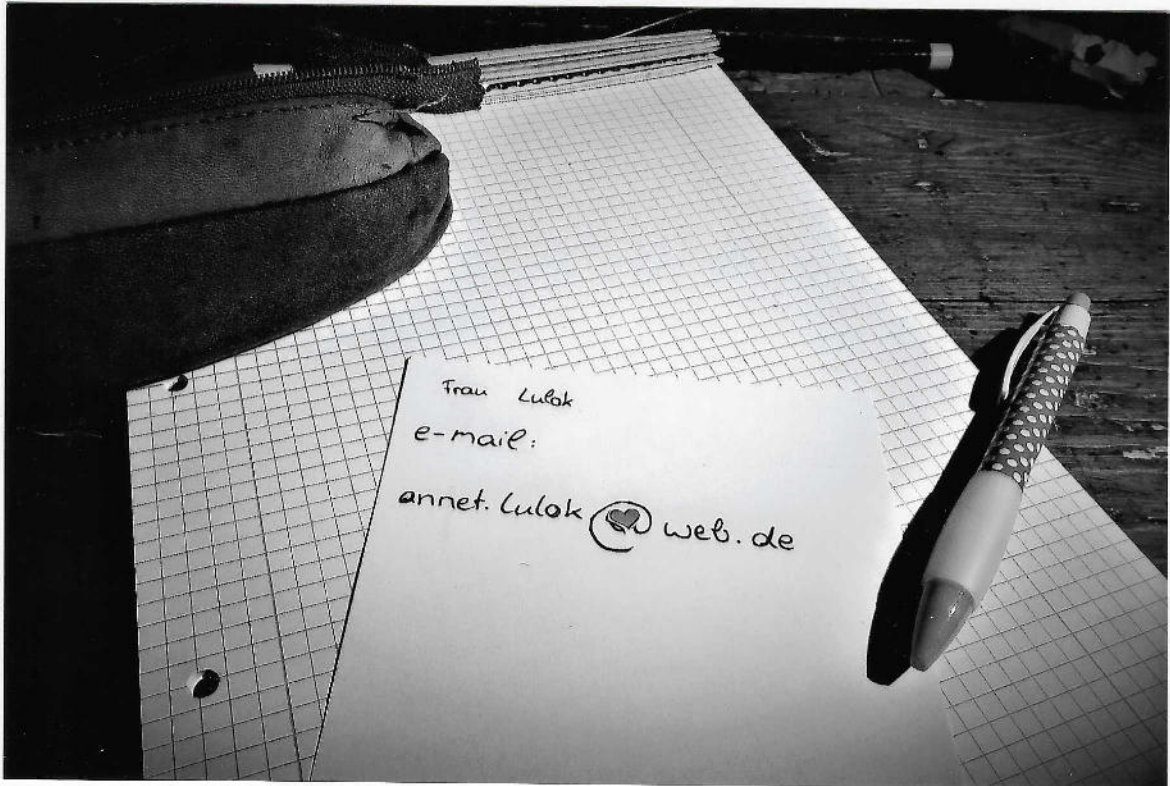 Frau Lulak
e-mail:
annet.lulak@web.de